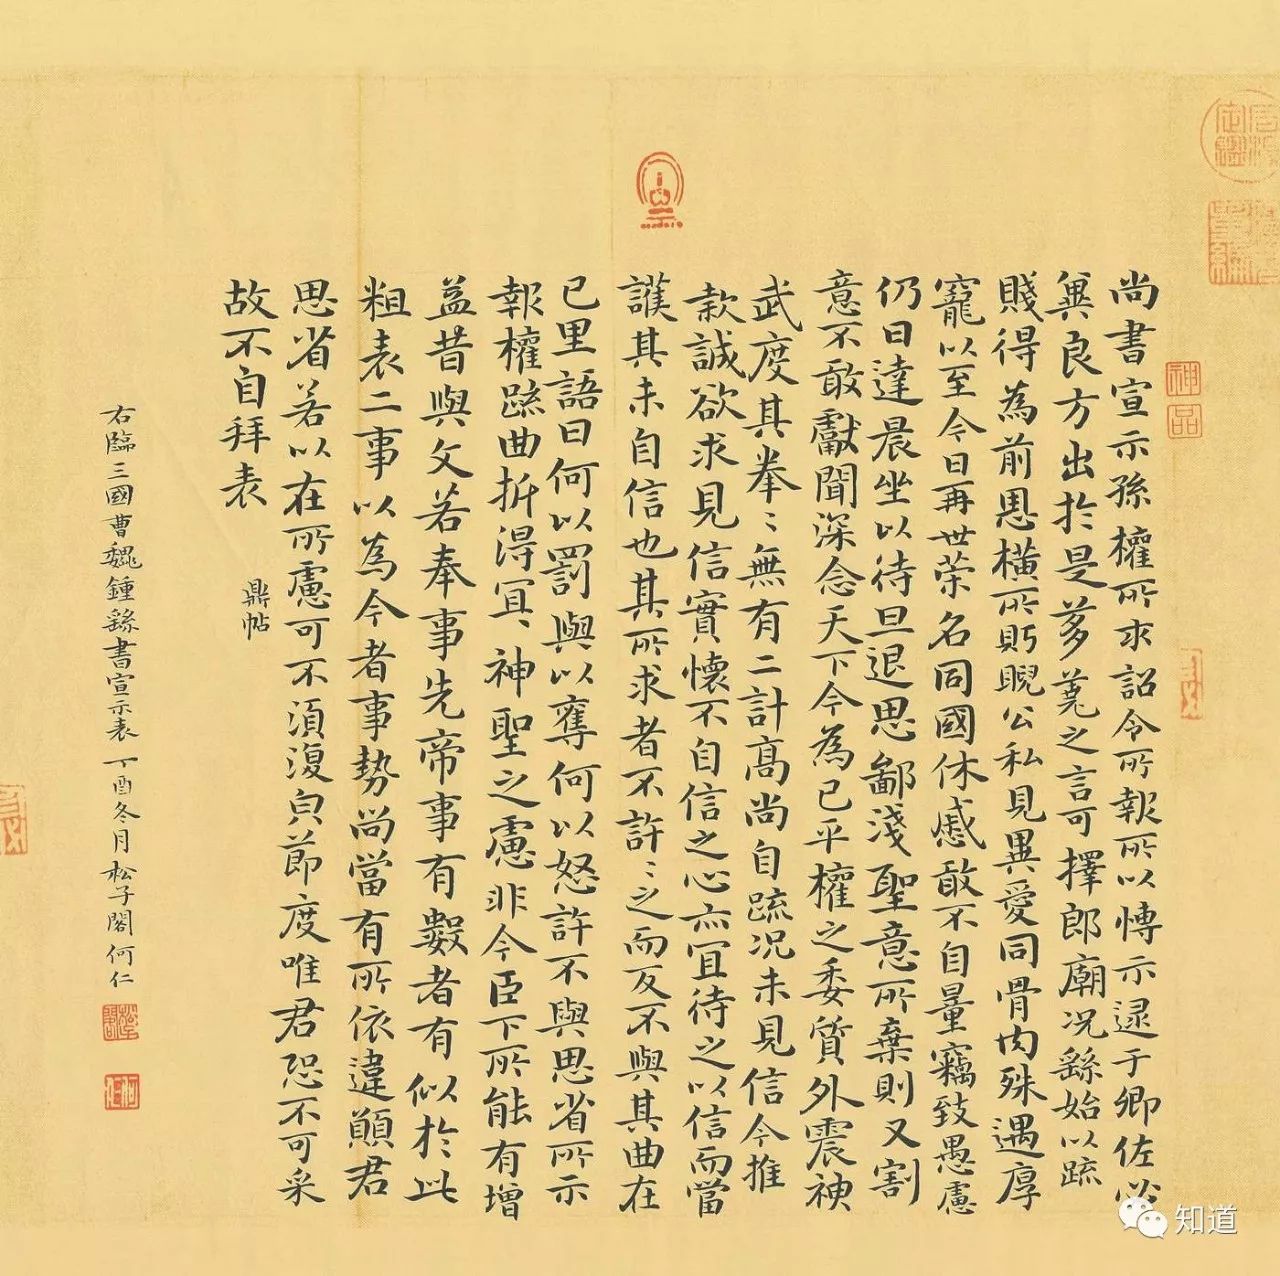 尚書宣示孫權所求詔令所報所以博示逮于卿佐必
冀良方出於是芻蕘之言可擇郎廟況繇始以疏
賤得為前恩橫所眄睨公私見異愛同骨肉殊遇厚
寵以至今日再世榮名同國休慼敢不自量竊致愚慮
仍日達晨坐以待旦退思鄙淺聖意所棄則又割
意不敢獻聞深念天下今為已平權之委質外震神
武度其拳〻無有二計高尚自疏況未見信今推
款誠欲求見信實懷不自信之心亦宜待之以信而當
護其未自信也其所求者不許〻之而反不與其曲在
已里語曰何以罰與以奪何以怒許不與思省所示
報權疏曲折得宜〻神聖之慮非今臣下所能有增
益昔與文若奉事先帝事有數者有似於此
粗表二事以為今者事勢尚當有所依違願君
思省若以在所慮可不須復皃節度唯君恐不可采
故不自拜表
鼎帖
右臨三國曹魏鍾繇書宣示表 丁酉冬月松子閣何仁
神品
知道